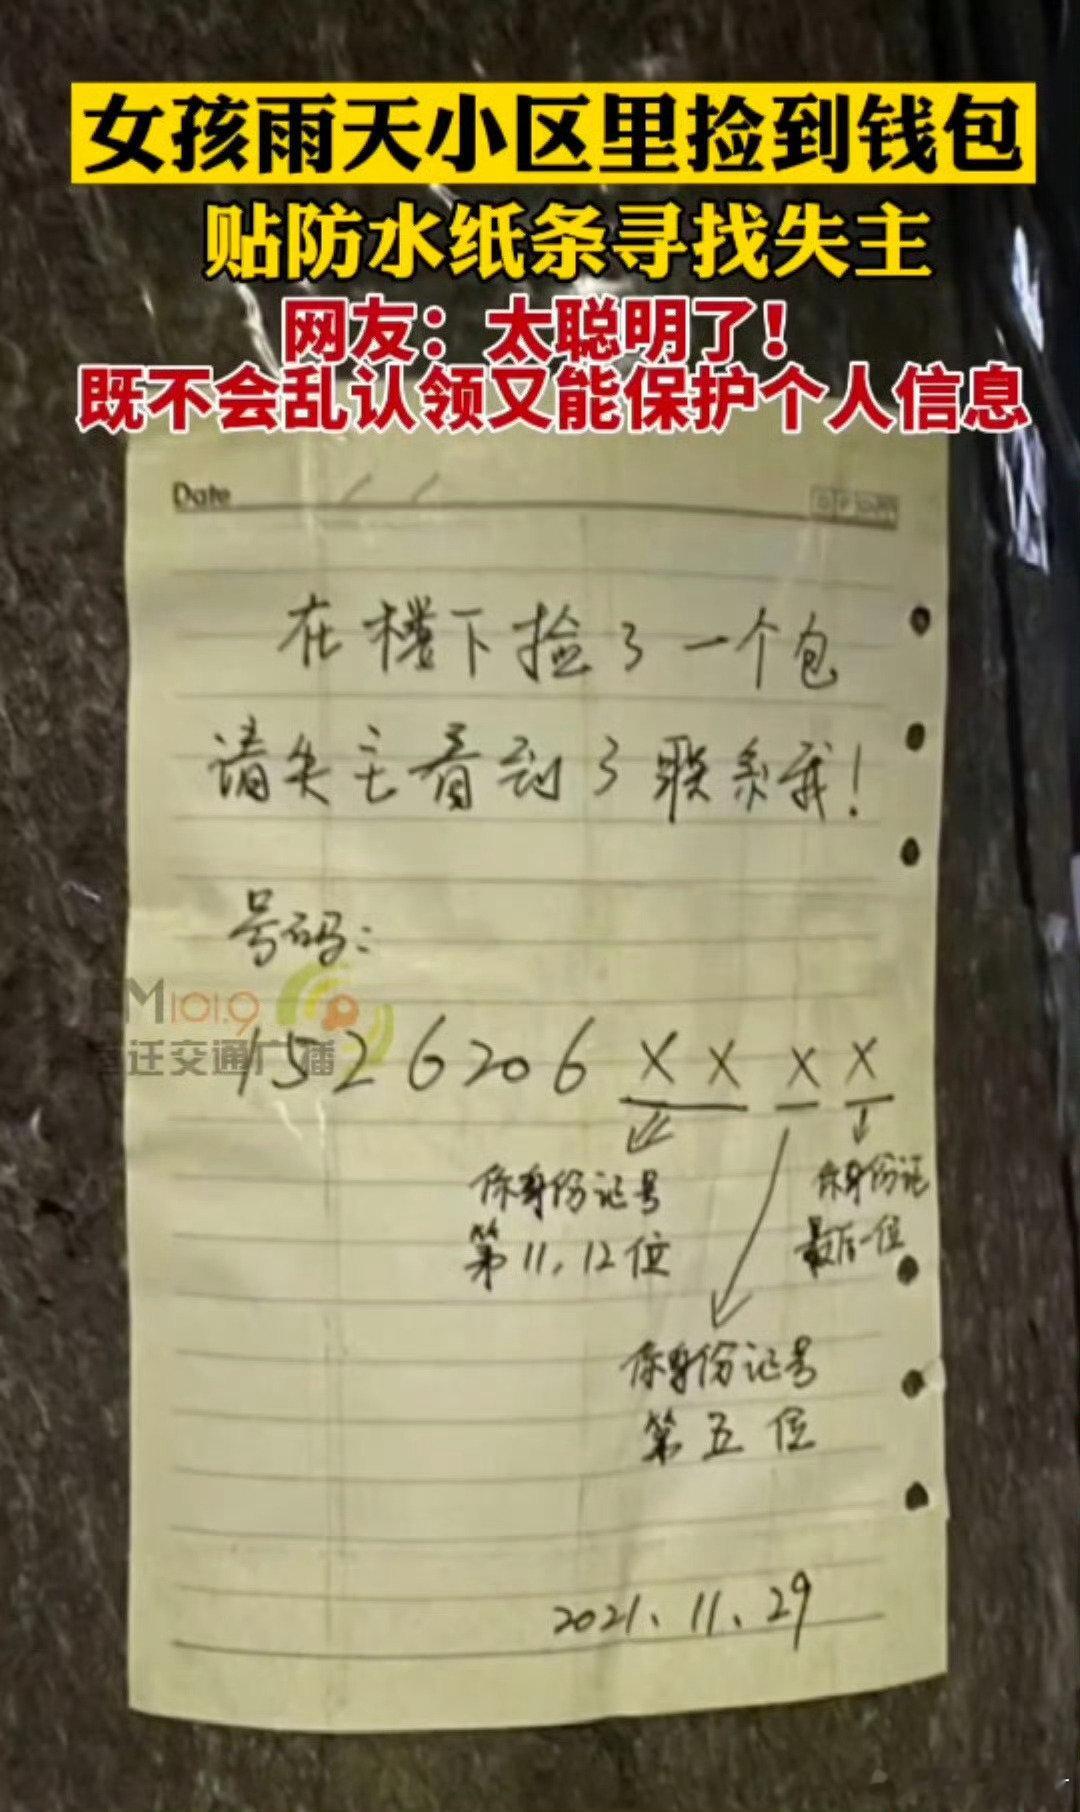 女孩雨天小区里捡到钱包
贴防水纸条寻找失主
网友：太聪明了！
既不会乱认领又能保护个人信息
Date
在楼下捡了一个包
请失主看到了联系我！
号码：
FM101.9
宿迁交通广播
1526206XXXX
你身份证号
第11、12位
你身份证
最后一位
你身份证号
第五位
2021、11、29